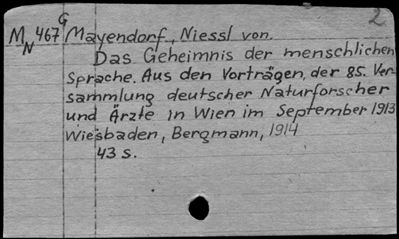 2
M N 467 G Mayendorf, Niessl von.
Das Geheimnis der menschlichen
Sprache. Aus den Vorträgen, der 85. Ver-
sammlung deutscher Naturforscher
und Ärzte in Wien im September 1913
Wiesbaden, Bergmann, 1914
43 s.